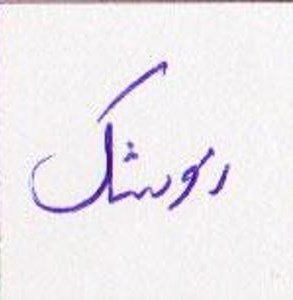 روشک